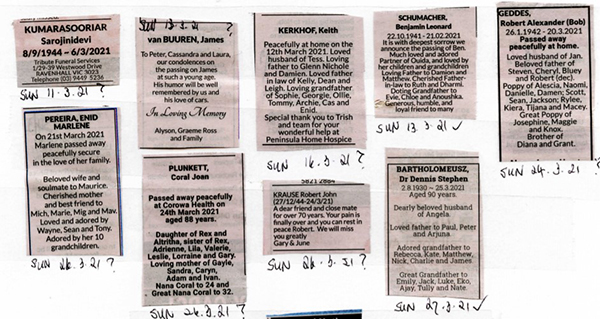 KUMARASOORIAR
Sarojinidevi
8/9/1944 ~ 6/3/2021
Tribute Funeral Services
1/29-39 Westwood Drive
RAVENHALL VIC 3023
Telephone (03) 9449 5236
SUN 11.3.21 ?
SUN 13.3.21 ?
van BUUREN, James
To Peter, Cassandra and Laura,
our condolences on
the passing on James
at such a young age.
His humor will be well
remembered by us and
his love of cars.
In Loving Memory
Alyson, Graeme Ross
and Family
KERKHOF, Keith
Peacefully at home on the
12th March 2021. Loved
husband of Tess. Loving
father to Glenn Nichole
and Damien. Loved father
in law of Kelly, Dean and
Leigh. Loving grandfather
of Sophie, Georgie, Ollie,
Tommy, Archie, Cas and
Enid.
Special thank you to Trish
and team for your
wonderful help at
Peninsula Home Hospice
SUN 16.3.21 ?
SCHUMACHER,
Benjamin Leonard
22.10.1941 - 21.02.2021
It is with deepest sorrow we
announce the passing of Ben.
Much loved and adored
Partner of Ouida, and loved by
her children and grandchildren
Loving Father to Damion and
Matthew. Cherished Father-
in-law to Ruth and Dharmi.
Doting Grandfather to
Evie, Chloe and Anoushka
Generous, humble, and
loyal friend to many
SUN 13.3.21 ✓
GEDDES,
Robert Alexander (Bob)
26.1.1942 - 20.3.2021
Passed away
peacefully at home.
Loved husband of Jan.
Beloved Father of
Steven, Cheryl, Bluey
and Robert (dec).
Poppy of Alescia, Naomi,
Danielle, Damen; Scott,
Sean, Jackson; Rylee,
Kiera, Tijana and Macy.
Great Poppy of
Josephine, Maggie
and Knox.
Brother of
Diana and Grant.
SUN 24.3.21 ?
PEREIRA, ENID
MARLENE
On 21st March 2021
Marlene passed away
peacefully secure
in the love of her family.
Beloved wife and
soulmate to Maurice.
Cherished mother
and best friend to
Mich, Marie, Mig and Mav.
Loved and adored by
Wayne, Sean and Tony.
Adored by her 10
grandchildren.
SUN 26.3.21 ?
PLUNKETT,
Coral Joan
Passed away peacefully
at Corowa Health on
24th March 2021
aged 88 years.
Daughter of Rex and
Altritha, sister of Rex,
Adrienne, Lila, Valerie,
Leslie, Lorraine and Gary.
Loving mother of Gayle,
Sandra, Caryn,
Adam and Ivan.
Nana Coral to 24 and
Great Nana Coral to 32.
SUN 26.3.21 ?
KRAUSE Robert John
(27/12/44-24/3/21)
A dear friend and close mate
for over 70 years. Your pain is
finally over and you can rest in
peace Robert. We will miss
you greatly
Gary & June
SUN 26.3.21 ?
BARTHOLOMEUSZ,
Dr Dennis Stephen
2.8.1930 ~ 25.3.2021
Aged 90 years.
Dearly beloved husband
of Angela.
Loved father to Paul, Peter
and Arjuna.
Adored grandfather to
Rebecca, Kate, Matthew,
Nick, Charlie and James
Great Grandfather to
Emily, Jack, Luke, Eko,
Ajay, Tully and Nate.
SUN 27.3.21 ✓